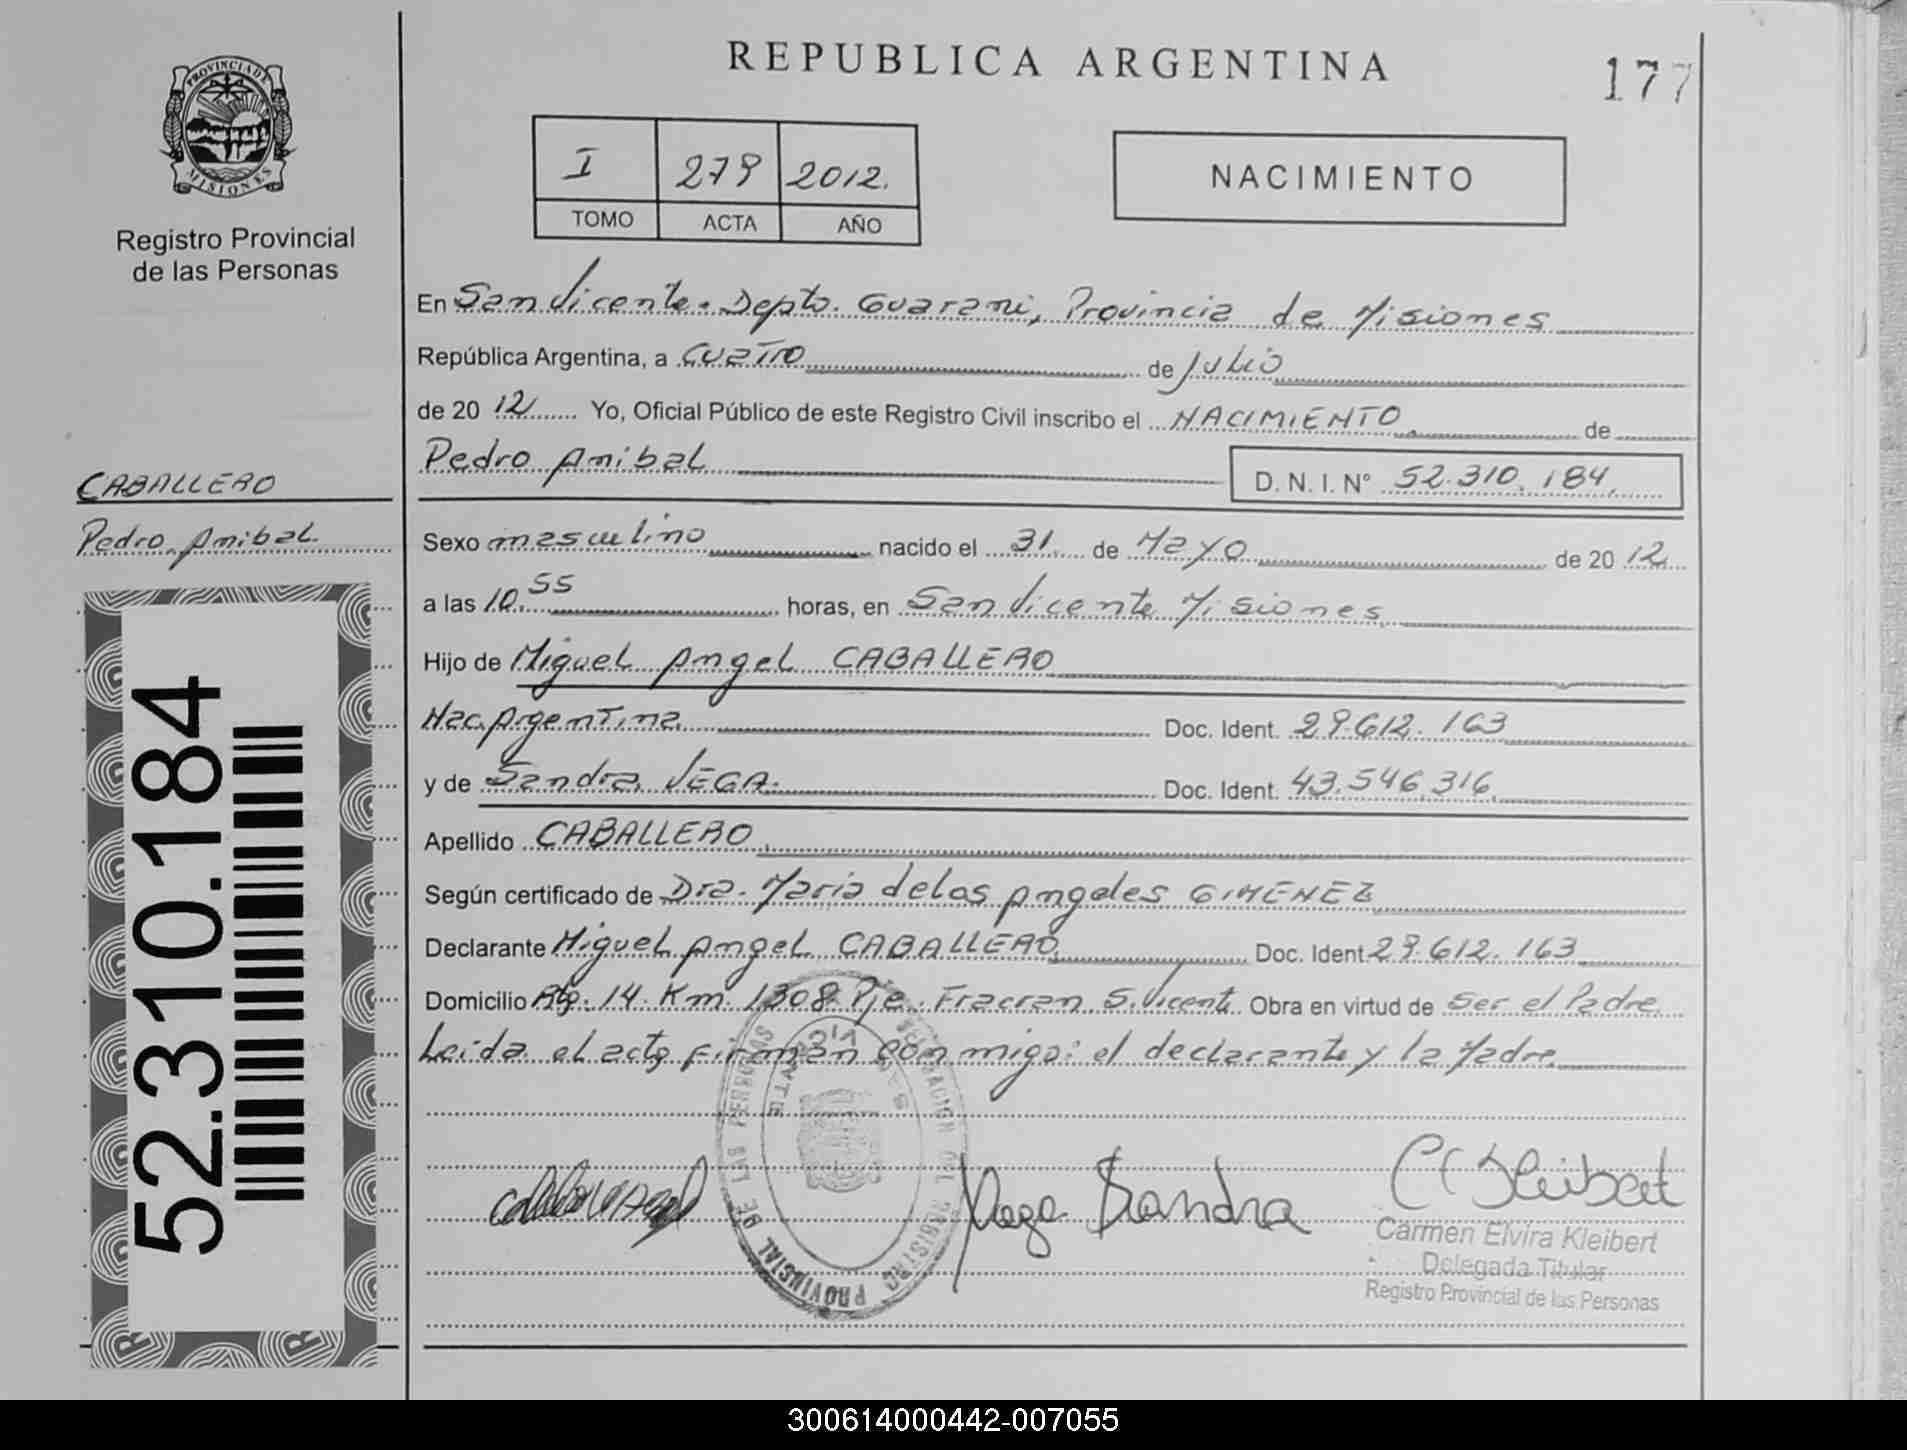 REPUBLICA ARGENTINA
177
PROVINCIA DE MISIONES
Registro Provincial
de las Personas
I 279 2012.
TOMO ACTA AÑO
NACIMIENTO
En San Vicente. Depto. Guarani, Provincia de Misiones
República Argentina, a Cuatro de Julio
de 20 12 Yo, Oficial Público de este Registro Civil inscribo el NACIMIENTO de
Pedro Anibal D. N. I. N° 52.310.184
CABALLERO
Pedro Anibal
52.310.184
Sexo masculino nacido el 31 de Mayo de 20 12
a las 10 55 horas, en San Vicente Misiones
Hijo de Miguel Angel CABALLERO
Nac. Argentina Doc. Ident. 29.612.163
y de Sandra VEGA. Doc. Ident. 43.546.316
Apellido CABALLERO
Según certificado de Dra. Maria delos Angeles GIMENEZ
Declarante Miguel Angel CABALLERO Doc. Ident 29.612.163
Domicilio Rta. 14. Km. 1308 Pje. Fracran S. Vicente Obra en virtud de Ser el Padre
Leida el acta firman con migo: el declarante y la Madre
PROVINSIAL DE LAS PERSONAS
Vega Sandra
C E Kleibert
Carmen Elvira Kleibert
Delegada Titular
Registro Provincial de las Personas
300614000442-007055